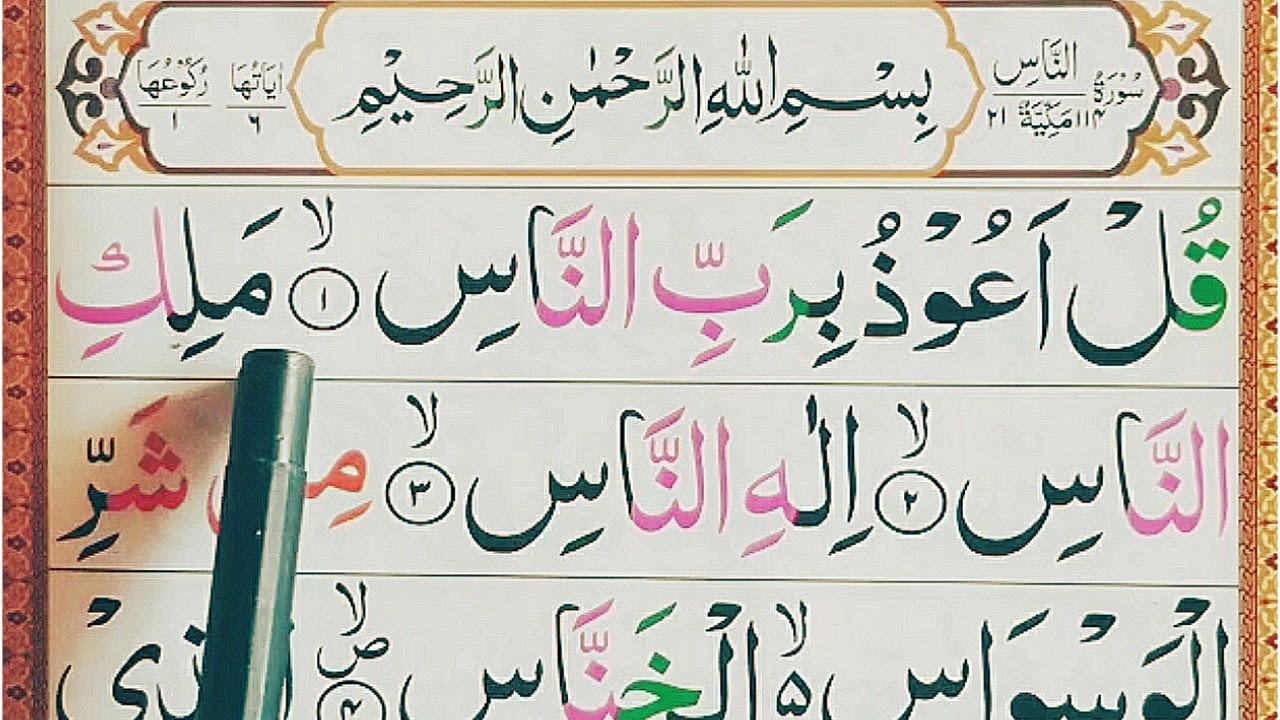 سُوْرَةُ النَّاسِ ١١٤ مَدَنِيَّةٌ ٢١
بِسْمِ اللّٰهِ الرَّحْمٰنِ الرَّحِيْمِ
اٰيَاتُهَا ٦ رُكُوْعُهَا ١
قُلْ اَعُوْذُ بِرَبِّ النَّاسِ ۙ ١ مَلِكِ
النَّاسِ ۙ ٢ اِلٰهِ النَّاسِ ۙ ٣ شَرِّ
الْوَسْوَاسِ ۙ۵ الْخَنَّاسِ ۙ ص ٤